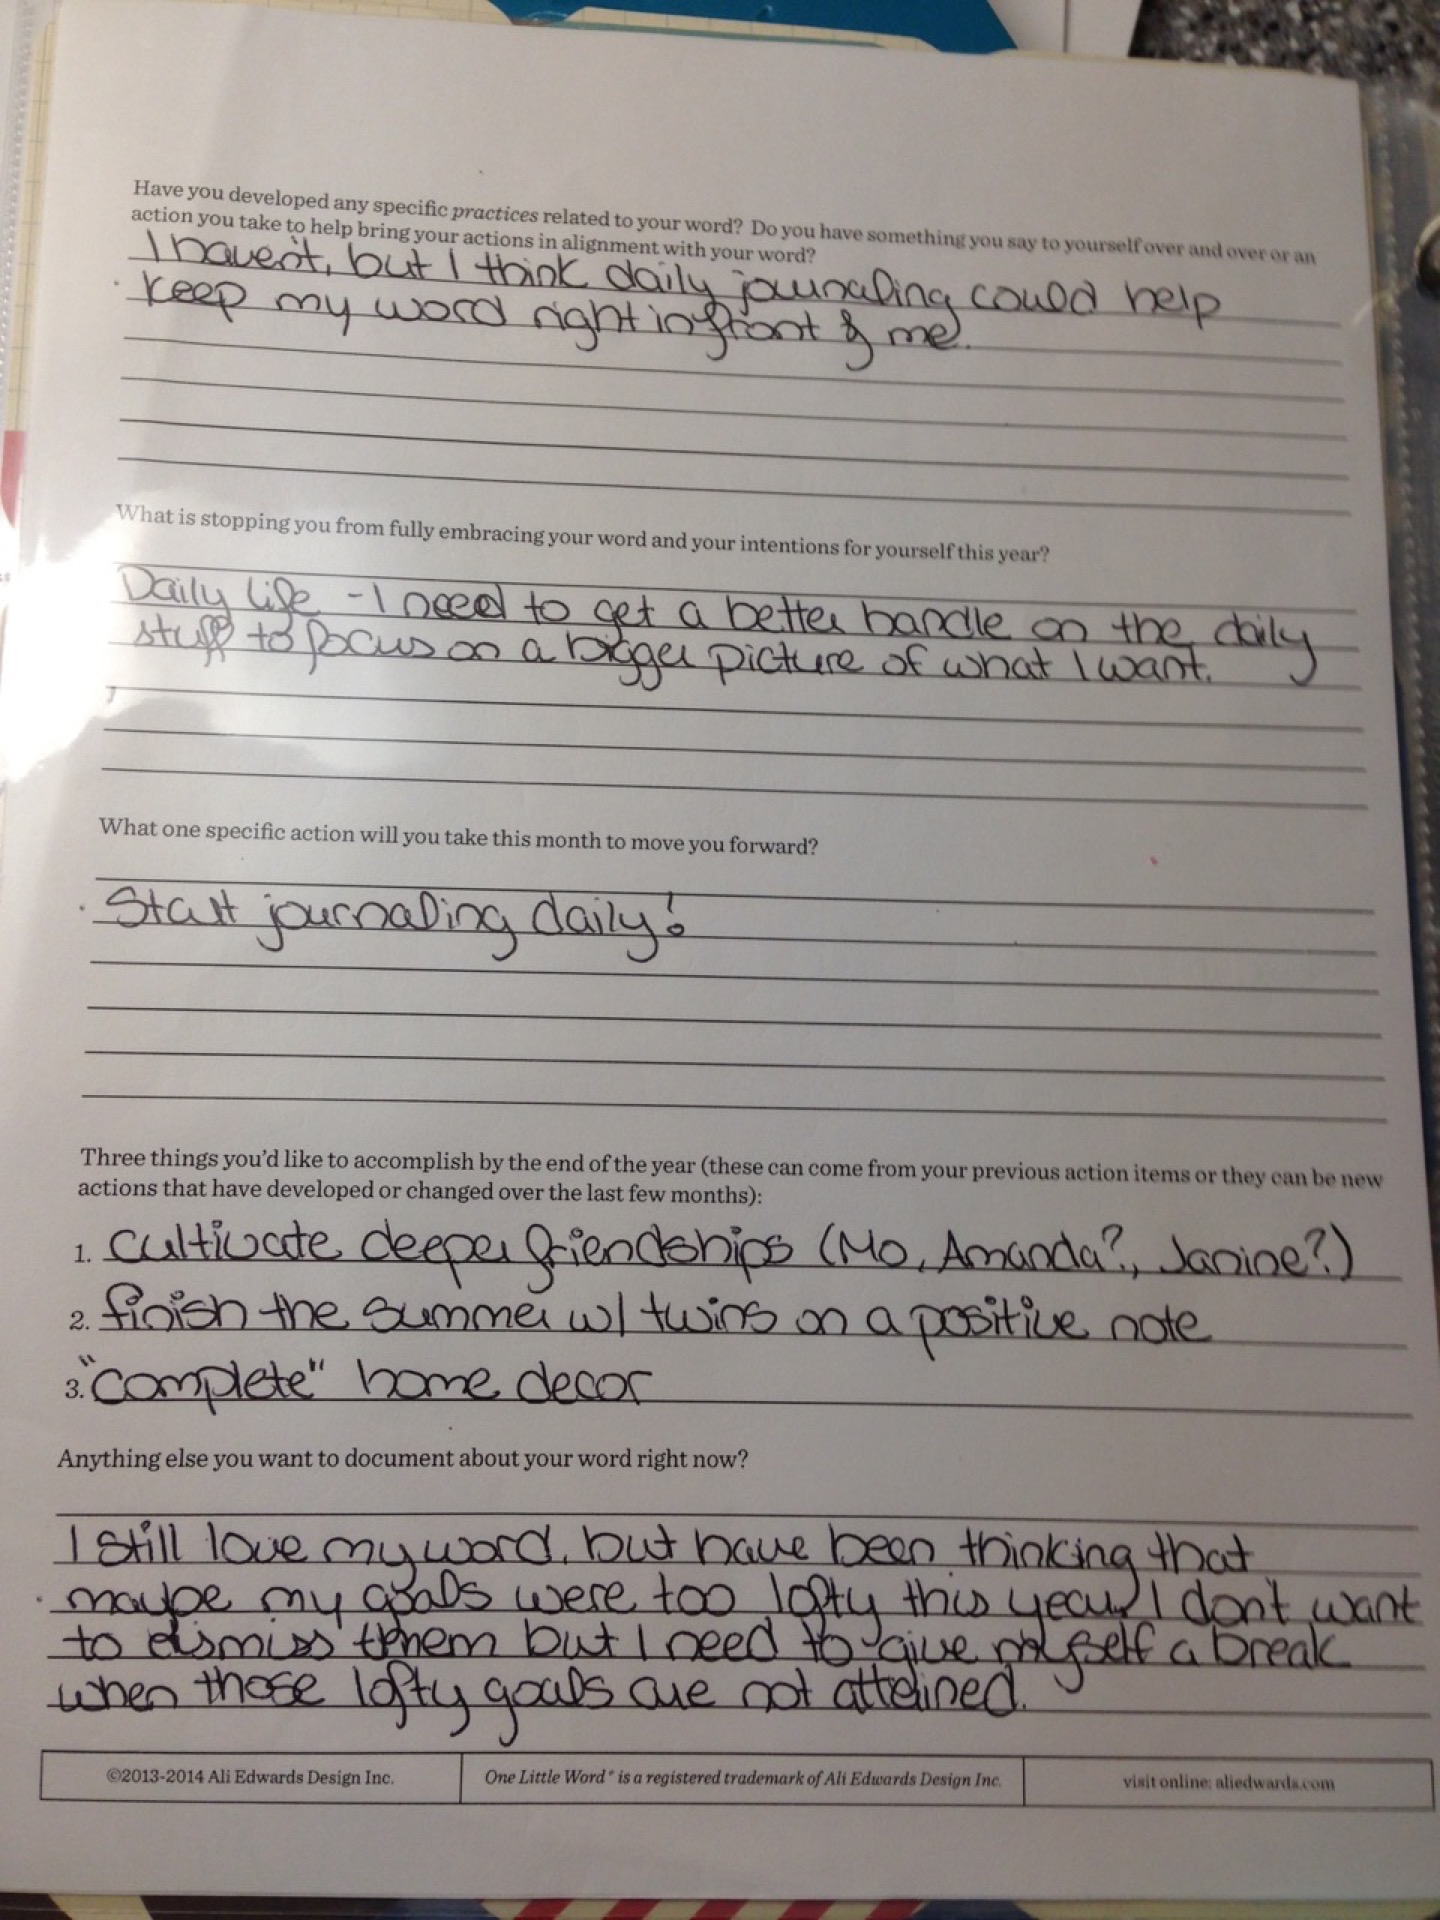 Have you developed any specific practices related to your word? Do you have something you say to yourself over and over or an
action you take to help bring your actions in alignment with your word?
I haven't, but I think daily journaling could help
keep my word right in front of me.
What is stopping you from fully embracing your word and your intentions for yourself this year?
Daily life - I need to get a better handle on the daily
stuff to focus on a bigger picture of what I want.
What one specific action will you take this month to move you forward?
Start journaling daily!
Three things you'd like to accomplish by the end of the year (these can come from your previous action items or they can be new
actions that have developed or changed over the last few months):
1. cultivate deeper friendships (Mo, Amanda?, Janine?)
2. finish the summer w/ twins on a positive note
3. "complete" home decor
Anything else you want to document about your word right now?
I still love my word, but have been thinking that
maybe my goals were too lofty this year. I don't want
to dismiss them but I need to give myself a break
when those lofty goals are not attained.
©2013-2014 Ali Edwards Design Inc. One Little Word® is a registered trademark of Ali Edwards Design Inc. visit online: aliedwards.com